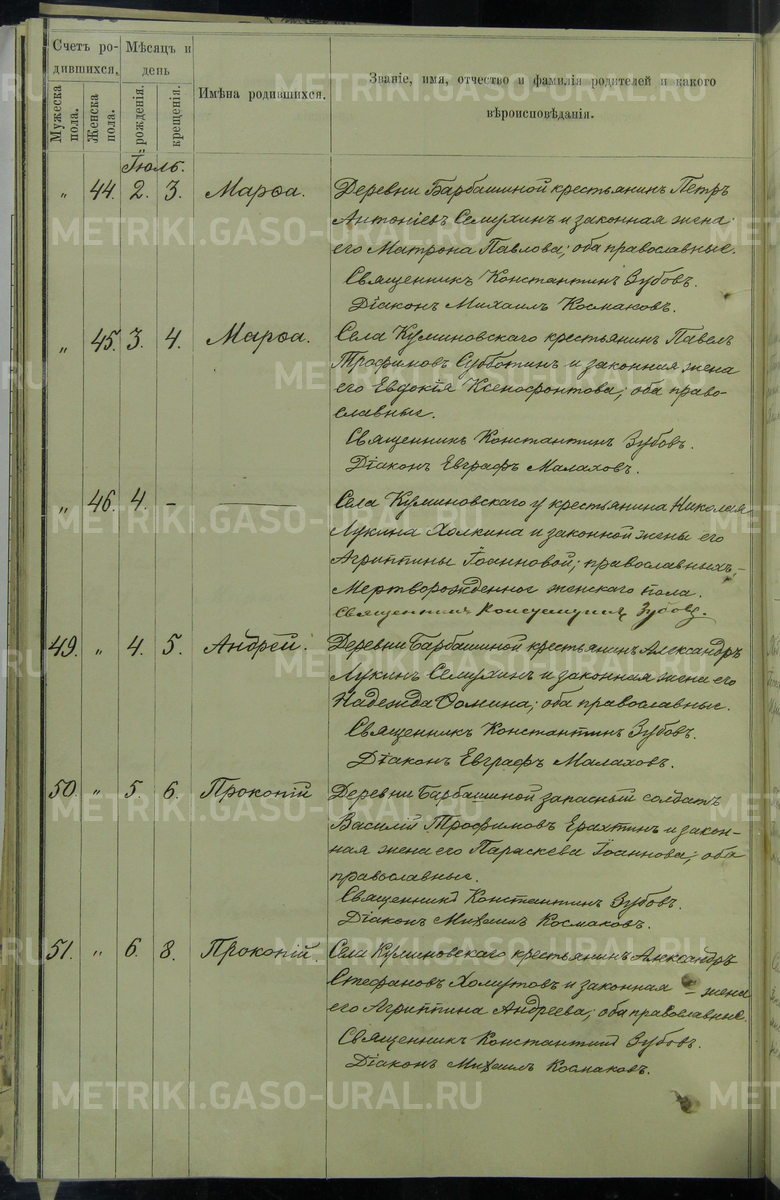 Счетъ ро-
дившихся.
Мѣсяцъ и
день
Мужеска
пола.
Женска
пола.
рожденія.
крещенія.
Имѣна родившихся.
Званіе, имя, отчество и фамилія родителей и какого
вѣроисповѣданія.
Іюль.
„ 44. 2. 3. Марѳа. Деревни Барбашиной крестьянинъ Петръ
Антоніевъ Семухинъ и законная жена
его Матрона Павлова; оба православные.
Священникъ Константинъ Зубовъ.
Діаконъ Михаилъ Космаковъ.
„ 45. 3. 4. Марѳа. Села Куминовскаго крестьянинъ Павелъ
Трофимовъ Субботинъ и законная жена
его Евдокія Ксенофонтова; оба право-
славные.
Священникъ Константинъ Зубовъ.
Діаконъ Евграфъ Малаховъ.
„ 46. 4. - — Села Куминовскаго у крестьянина Николая
Лукина Холкина и законной жены его
Агриппины Іоанновой; православныхъ -
Мертворожденное женскаго пола.
Священникъ Константинъ Зубовъ.
49. „ 4. 5. Андрей. Деревни Барбашиной крестьянинъ Александръ
Лукинъ Семухинъ и законная жена его
Надежда Ѳомина; оба православные.
Священникъ Константинъ Зубовъ.
Діаконъ Евграфъ Малаховъ.
50. „ 5. 6. Прокопій Деревни Барбашиной запасный солдатъ
Василій Трофимовъ Ерахтинъ и закон-
ная жена его Параскева Іоаннова; оба
православные.
Священникъ Константинъ Зубовъ.
Діаконъ Михаилъ Космаковъ.
51. „ 6. 8. Прокопій. Села Куминовскаго крестьянинъ Александръ
Стефановъ Хомутовъ и законная - жена
его Агриппина Андреева; оба православные.
Священникъ Константинъ Зубовъ.
Діаконъ Михаилъ Космаковъ.
METRIKI.GASO-URAL.RU